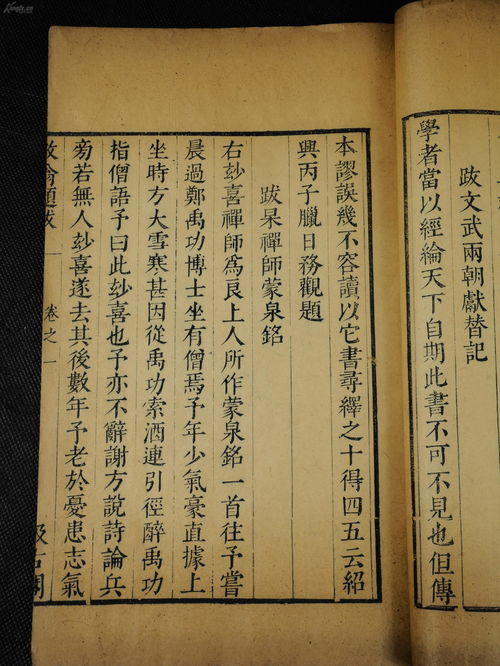 跋文武兩朝獻替記
學者當以經綸天下自期此書不可不見也但傳
本謬誤幾不容讀以它書尋繹之十得四五云紹
興丙子臘日務觀題
跋杲禪師蒙泉銘
右玅喜禪師為良上人所作蒙泉銘一首往予嘗
晨過鄭禹功博士坐有僧焉予年少氣豪直據上
坐時方大雪寒甚因從禹功索酒連引徑醉禹功
指僧語予曰此玅喜也予亦不辭謝方說詩論兵
旁若無人玅喜遂去其後數年予老於憂患志氣
放翁題跋 卷之一 汲古閣